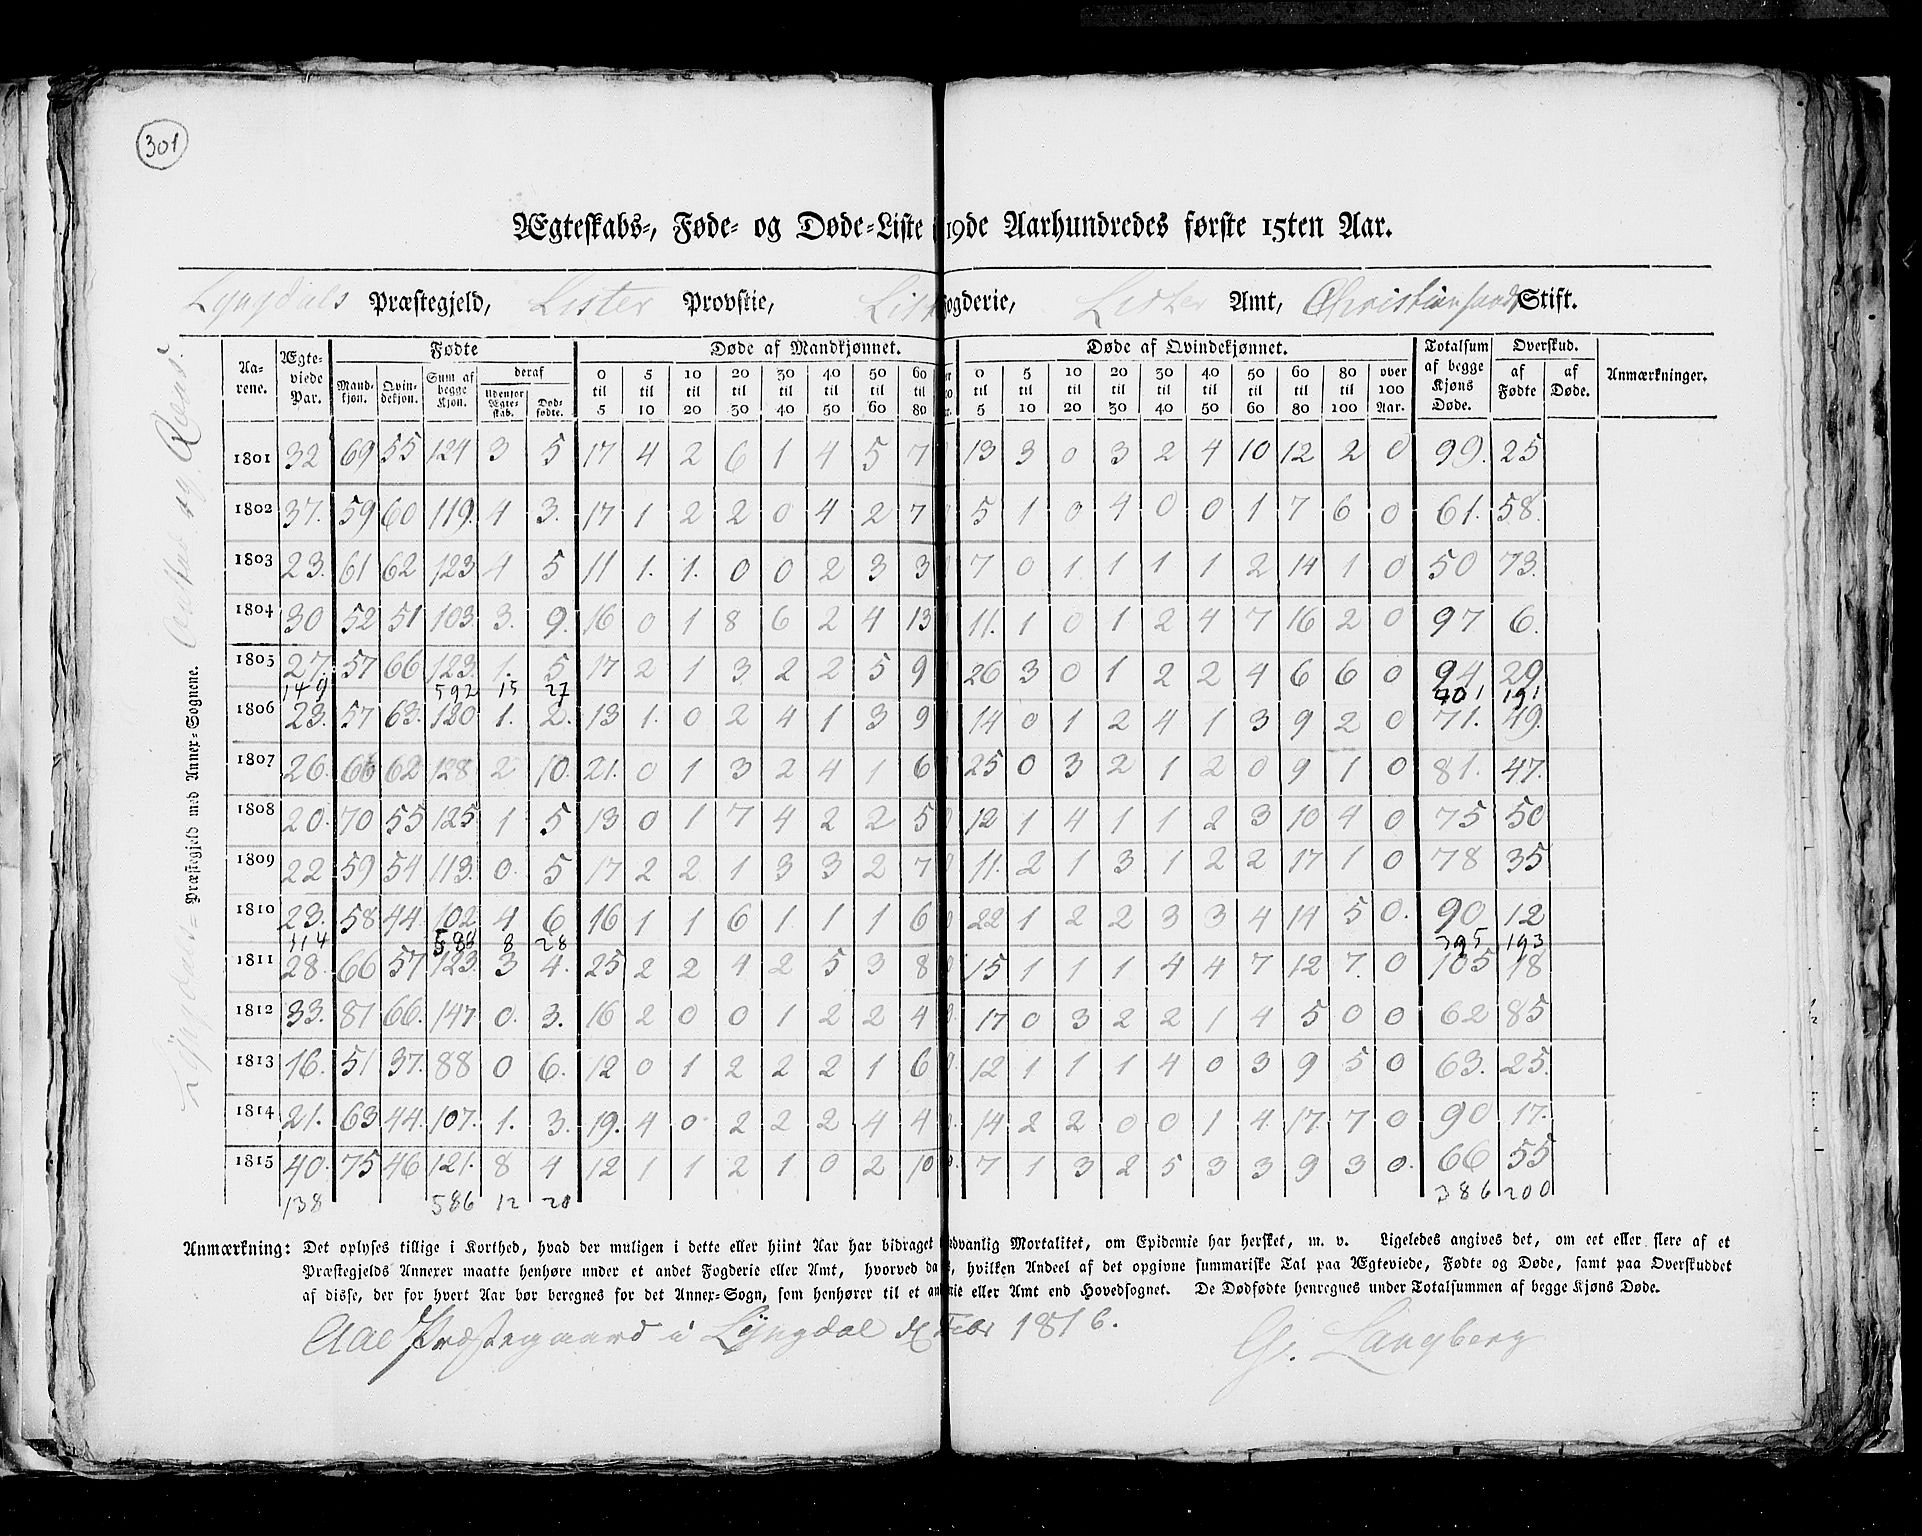 301
Ægteskabs-, Føde- og Døde-Liste 19de Aarhundredes første 15ten Aar.
Lyngdals Præstegjeld, Lister Provstie, List ogderie, Lister Amt, Christiansands Stift.
Præstegjeld med Annex-Sognene.
Aarene. Ægteviede Par. Fødte Døde af Mandkjønnet. Døde af Qvindekjønnet. Totalsum af begge Kjøns Døde. Overskud. Anmærkninger.
Mandkjøn. Qvindekjøn. Sum af begge Kjøn. deraf Udenfor Ægteskab. Dødfødte. 0 til 5 5 til 10 10 til 20 20 til 30 30 til 40 40 til 50 50 til 60 60 til 80 0 til 5 5 til 10 10 til 20 20 til 30 30 til 40 40 til 50 50 til 60 60 til 80 80 til 100 over 100 Aar. af Fødte af Døde.
1801 32 69 55 124 3 5 17 4 2 6 1 4 5 7 13 3 0 3 2 4 10 12 2 0 99. 25
1802 37. 59 60 119. 4 3. 17 1 2 2 0 4 2 7 5 1 0 4 0 0 1 7 6 0 61. 58.
1803 23. 61 62 123 4 5 11 1. 1. 0 0 2 3 3 7 0 1 1 1 1 2 14 1 0 50 73.
1804 30 52 51 103. 3. 9. 16 0 1 8 6 2 4 13 11. 1 0 1 2 4 7 16 2 0 97 6.
1805 27. 57 66 123. 1. 5 17 2 1 3 2 2 5 9 26 3 0 1 2 2 4 6 6 0 94 29
149 592 15 27 401 191
1806 23. 57 63. 120 1. 2. 13 1. 0 2 4 1 3 9 14 0 1 2 4 1 3 9 2 0 71. 49.
1807 26. 66 62 128 2 10. 21. 0 1 3 2 4 1 6 25 0 3 2 1 2 0 9 1 0 81. 47.
1808 20. 70 55 125 1 5 13 0 1 7 4 2 2 5 12 1 4 1 1 2 3 10 4 0 75 50
1809 22 59 54 113. 0. 5 17 2 2 1 3 3 2 7 11. 2 1 3 1 2 2 17 1 0 78 35
1810 23. 58 44 102 4 6 16 1 1 6 1 1 1 6 22 1 2 2 3 3 4 14 5 0. 90 12
114 588 8 28 395 193
1811 28. 66 57 123. 3 4. 25 2 2 4 2 5 3 8 15 1 1 1 4 4 7 12 7. 0 105 18
1812 33. 81 66. 147 0. 3. 16 2 0 0 1 2 2 4 17 0 3 2 2 1 4 5 0 0 62 85
1813 16. 51 37. 88 0 6. 12 0 1 2 2 2 1 6 12 1 1 1 4 0 3 9 5 0 63. 25.
1814 21. 63 44. 107. 1. 3. 19. 4 0 2 2 2 4 4 14 2 2 0 0 1 4 17. 7 0 90 17.
1815 40. 75 46 121. 8 4 12 1 1 2 1 0 2 10 7 1 3 2 5 3 3 9 3 0. 66 55
138 586 12 20 386 200
Anmærkning: Det oplyses tillige i Korthed, hvad der muligen i dette eller hiint Aar har bidraget ædvanlig Mortalitet, om Epidemie har hersket, m. v. Ligeledes angives det, om eet eller flere af et
Præstegjelds Annexer maatte henhøre under et andet Fogderie eller Amt, hvorved da s, hvilken Andeel af det opgivne summariske Tal paa Ægteviede, Fødte og Døde, samt paa Overskuddet
af disse, der for hvert Aar bør beregnes for det Annex-Sogn, som henhører til et an rie eller Amt end Hovedsognet. De Dødfødte henregnes under Totalsummen af begge Kjøns Døde.
Aae Præstegaard i Lyngdal Febr 1816. G. Langberg